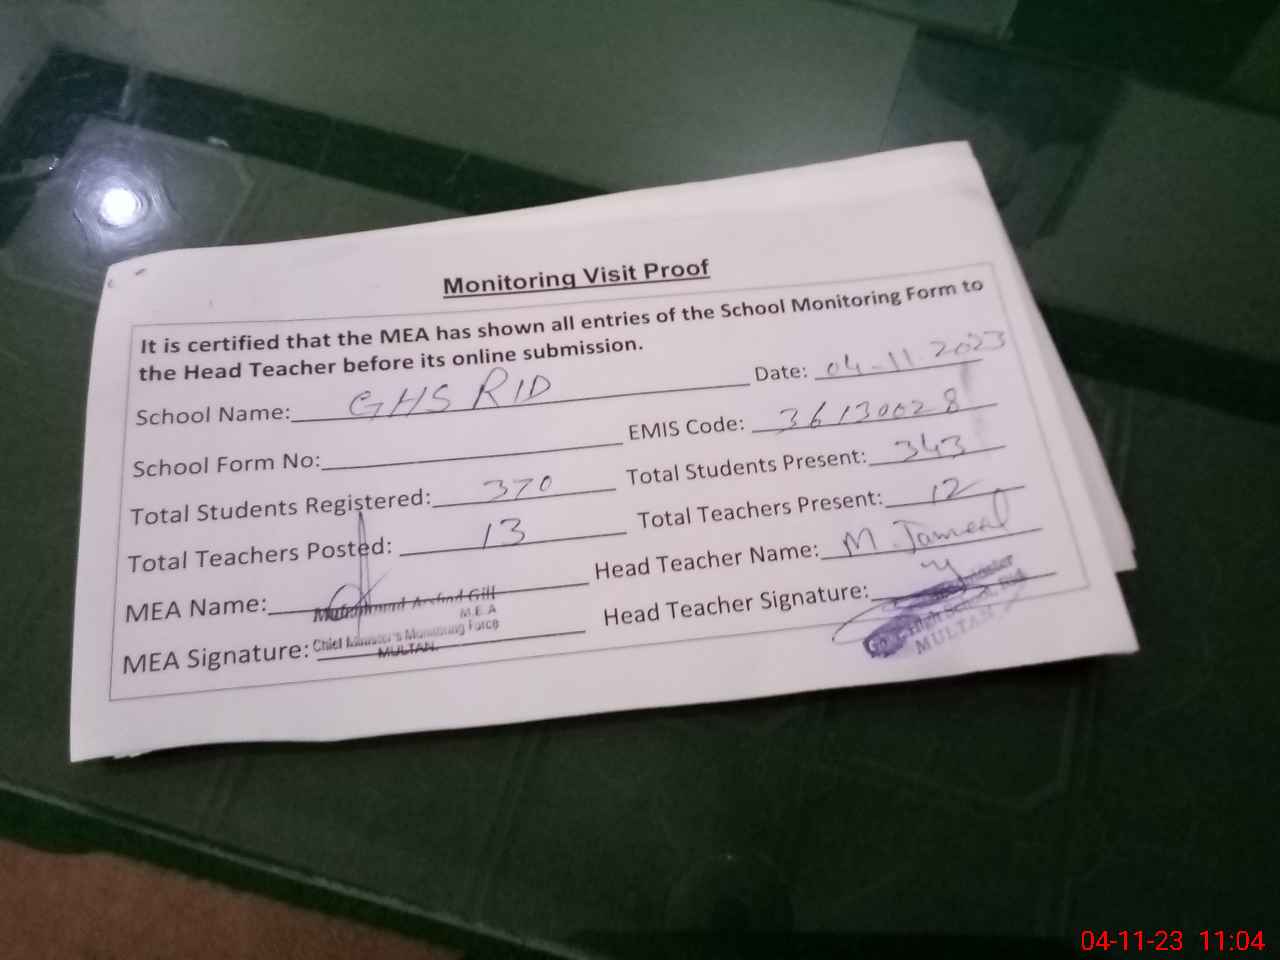 Monitoring Visit Proof
It is certified that the MEA has shown all entries of the School Monitoring Form to
the Head Teacher before its online submission.
School Name: GHS RID Date: 04-11-2023
School Form No: EMIS Code: 36130028
Total Students Registered: 370 Total Students Present: 343
Total Teachers Posted: 13 Total Teachers Present: 12
MEA Name: Head Teacher Name: M. Jameel
Muhammad Arshad Gill
M.E.A
MEA Signature: Chief Minister's Monitoring Force Head Teacher Signature:
MULTAN.
High School, Rid
MULTAN
04-11-23 11:04